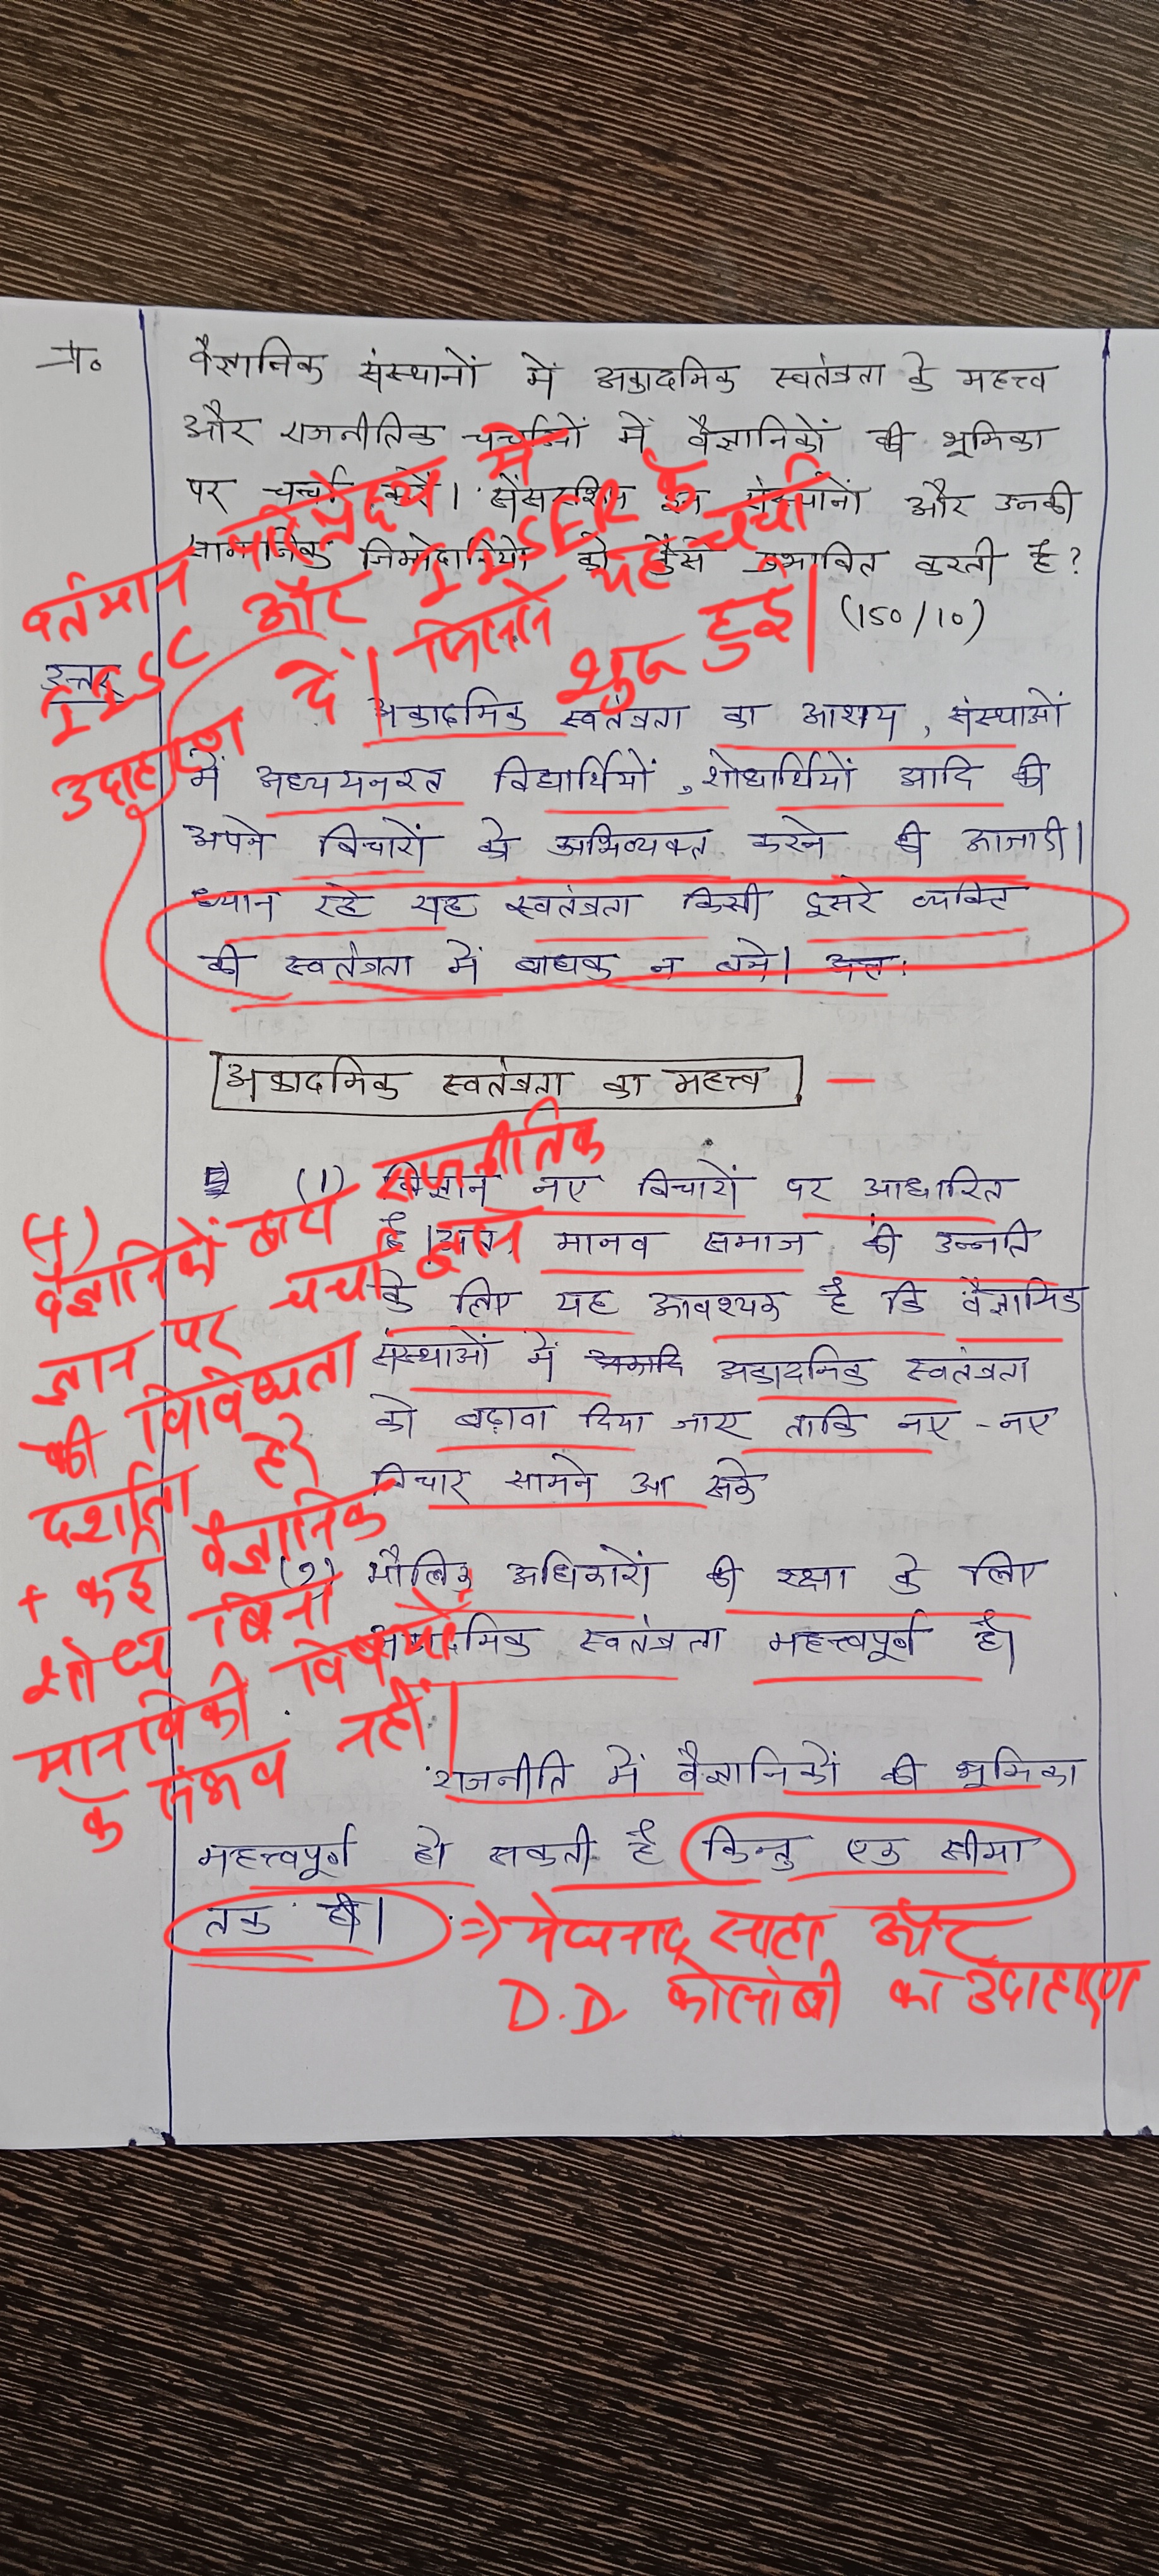 प्र०
वैज्ञानिक संस्थानों में अकादमिक स्वतंत्रता के महत्त्व
और राजनीतिक चर्चाओं में वैज्ञानिकों की भूमिका
पर चर्चा करें। सेंसरशिप इन संस्थानों और उनकी
सामाजिक जिम्मेदारियों को कैसे प्रभावित करती है?
(150/10)
वर्तमान परिप्रेक्ष्य में
IISC और IISER के
उदाहरण दें। जिससे यह चर्चा
शुरू हुई।
उत्तर
अकादमिक स्वतंत्रता का आशय, संस्थाओं
में अध्ययनरत विद्यार्थियों, शोधार्थियों आदि की
अपने विचारों को अभिव्यक्त करने की आजादी।
ध्यान रहे यह स्वतंत्रता किसी दूसरे व्यक्ति
की स्वतंत्रता में बाधक न बने। अतः
अकादमिक स्वतंत्रता का महत्त्व
(1) विज्ञान नए विचारों पर आधारित
है। अतः मानव समाज की उन्नति
के लिए यह आवश्यक है कि वैज्ञानिक
संस्थाओं में अकादमिक स्वतंत्रता
को बढ़ावा दिया जाए ताकि नए-नए
विचार सामने आ सके
(2) मौलिक अधिकारों की रक्षा के लिए
अकादमिक स्वतंत्रता महत्त्वपूर्ण है।
वैज्ञानिकों द्वारा राजनीतिक
ज्ञान पर चर्चा
की विविधता
दर्शाता है
+ कई वैज्ञानिक
शोध बिना
मानविकी विषयों
के संभव नहीं।
राजनीति में वैज्ञानिकों की भूमिका
महत्त्वपूर्ण हो सकती है किन्तु एक सीमा
तक ही।
⇒ मेघनाद साहा और
D.D. कोसांबी का उदाहरण